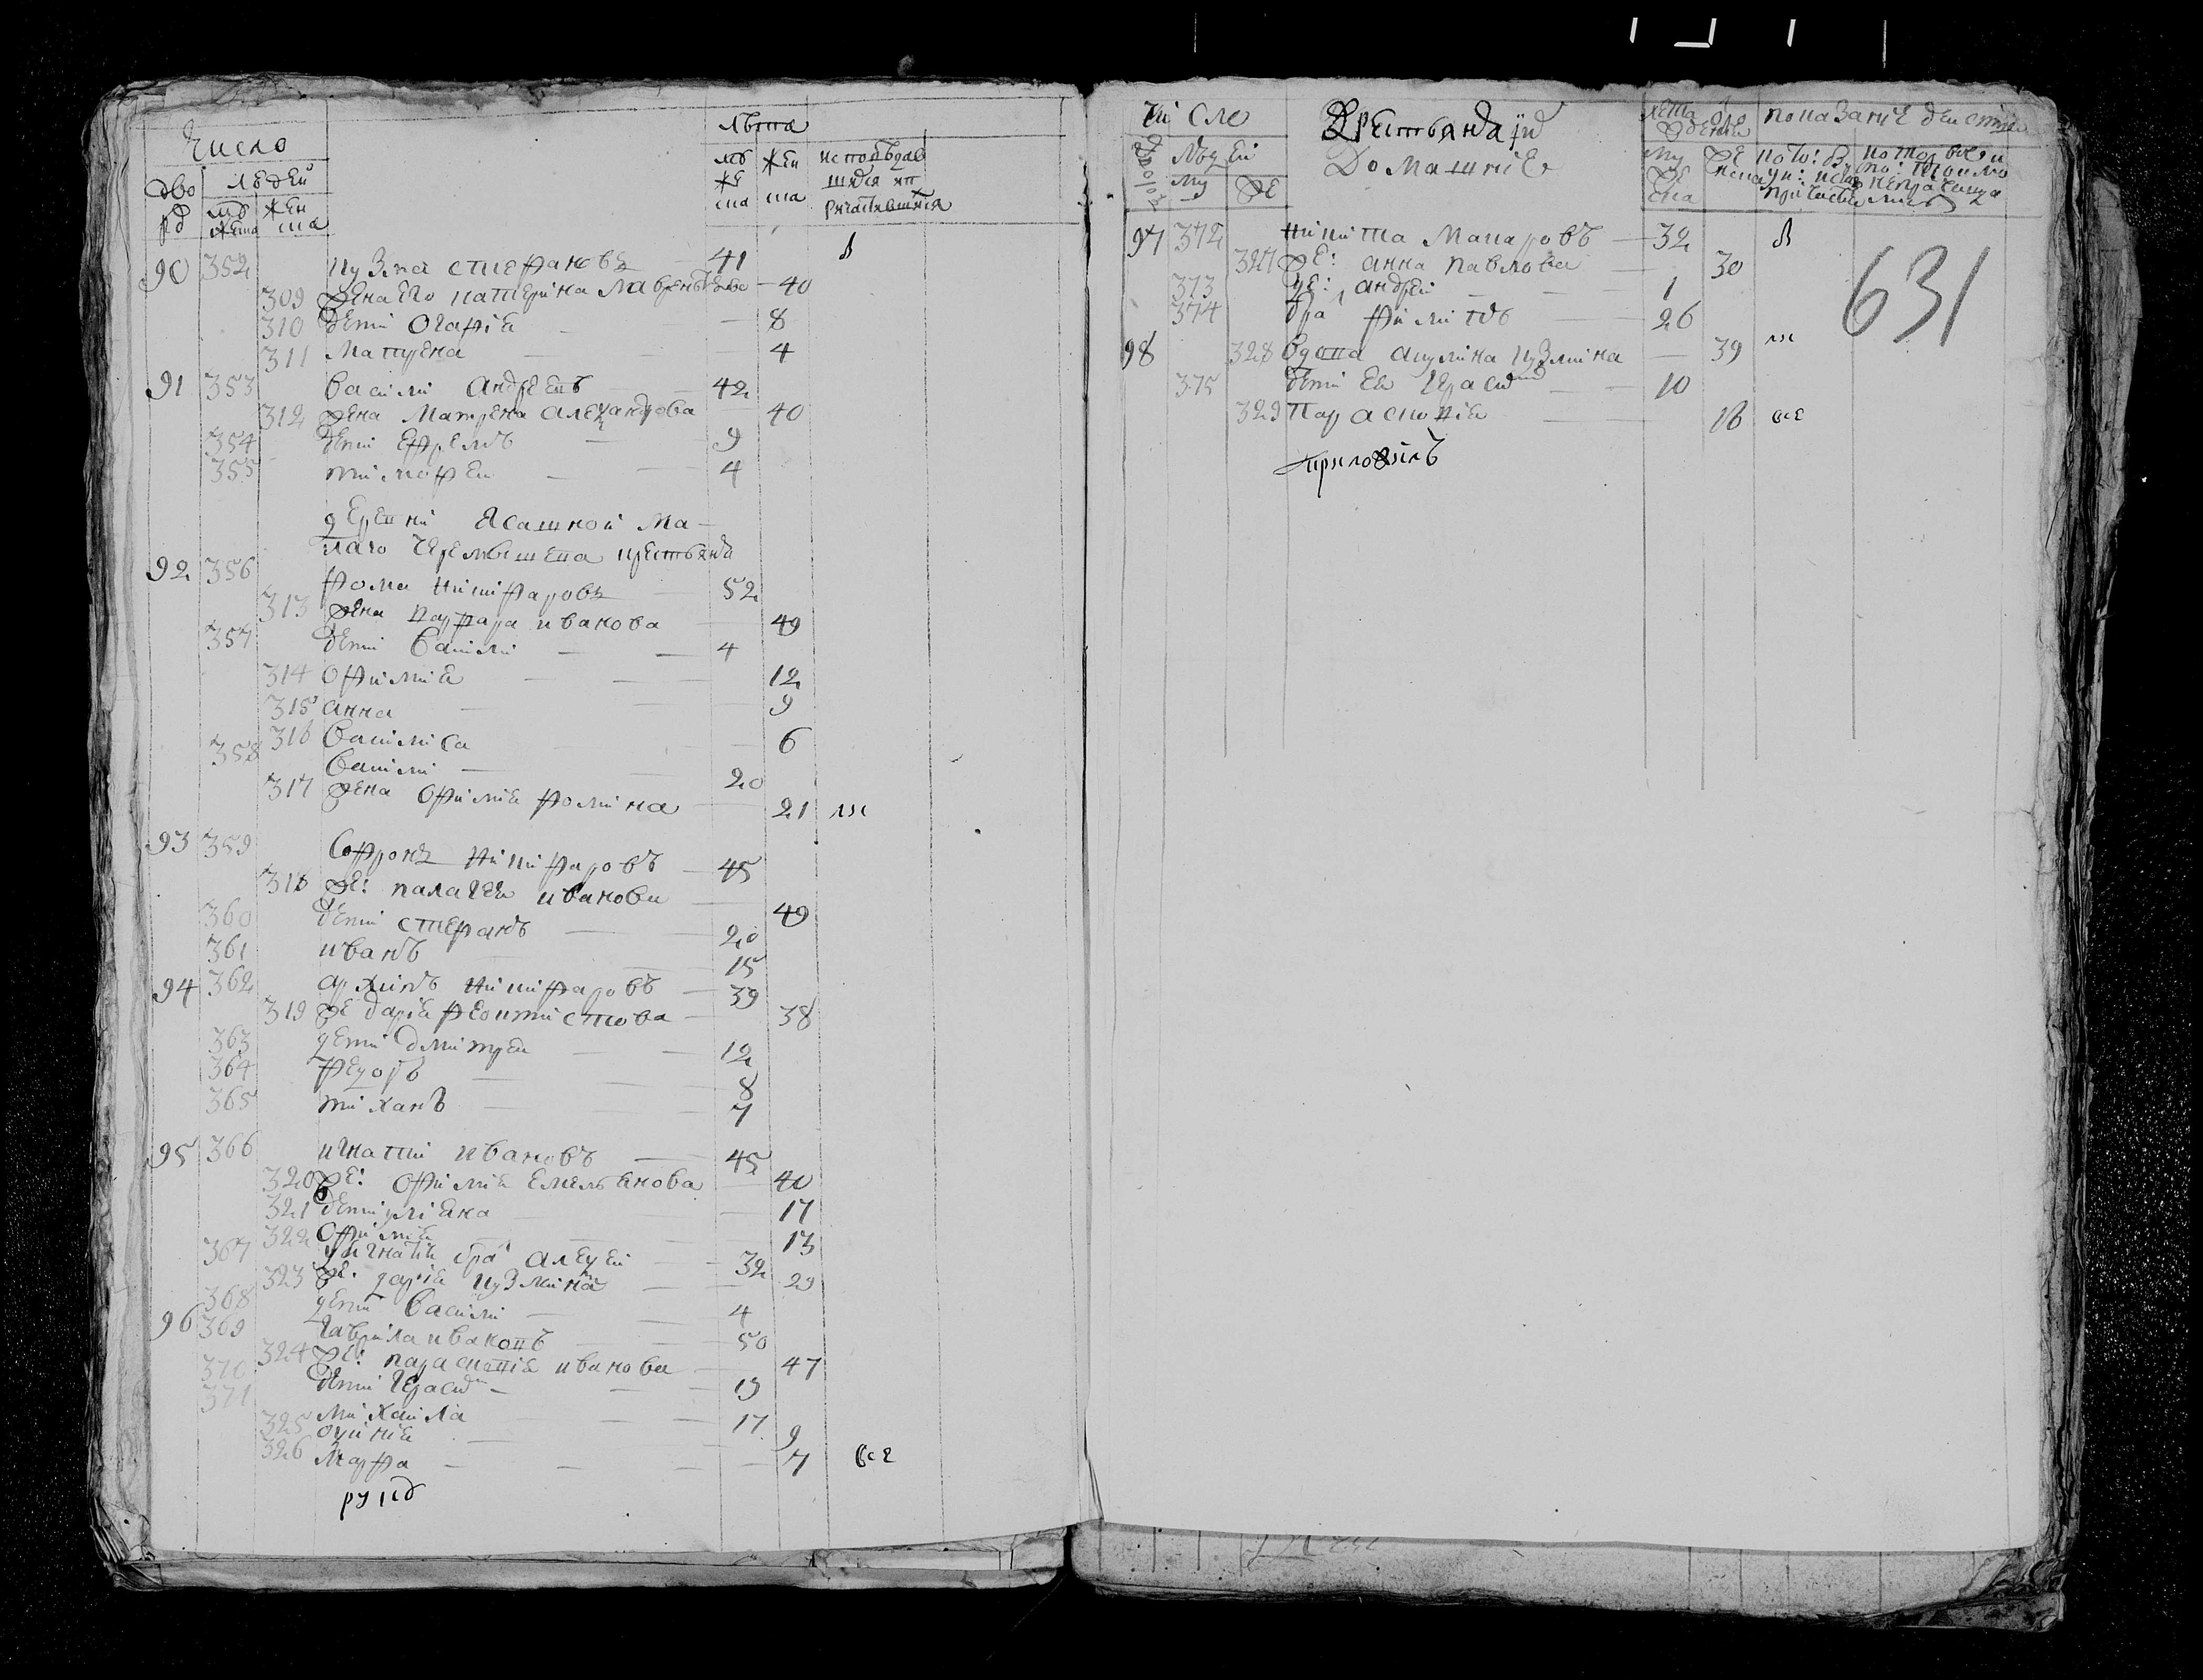 Число
лѣта
дворъ людей мужеска женска
мужеска женска исповѣдавшихся и причастившихся
90 352 кузма стефановъ 41 в
309 жена его катерина Лаврентьева 40
310 дети Огафія 8
311 Матрена 4
91 353 василий Андреевъ 42
312 жена Матрена алеѯандрова 40
354 дети Ефремъ 9
355 тимофей 4
деревни Ясашной Ма-
лаго Черемышева крестьянъ
92 356 фома никифаровъ 52
313 жена варвара иванова 49
357 дети василий 4
314 офимия 12
315 анна 9
316 василиса 6
358 василий 20
317 жена офимия фомина 21
93 359 Софронъ никифаровъ 45
318 же: палагея иванова 49
360 дети стефанъ 20
361 иванъ 15
94 362 архипъ никифаровъ 39
319 же дария феоктистова 38
363 дети дмитрей 12
364 федоръ 8
365 тиханъ 7
95 366 игнатий ивановъ 45
320 же: офимия емельянова 40
321 дети улияна 17
322 офимия 13
367 у игнатия бра алеѯей 32
323 же: дария кузмина 29
368 дети василий 4
96 369 гаврила ивановъ 50
324 же: параскевия иванова 47
370 дети герасим 19
371 михайла 17
325 9
326 Марфа 7 все
руку
числе
Крестьянъ ихъ
домашние
лета от рождения
показание действия
людей
му же
му же
97 372 никита Макаровъ 32 в
327 же: анна павлова 30
373 де: андрей 1
374 бра филипъ 26
98 328 вдова акулина кузмина 39
375 дети ея герасим 10
329 Параскевия 16 все
приложилъ
631